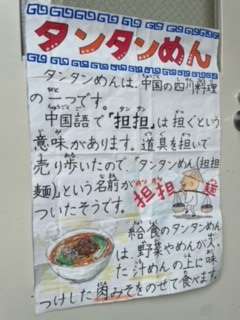 タンタンめん
タンタンめんは、中国の四川料理
の一つです。
中国語で「担担」は担ぐという
意味があります。道具を担いで
売り歩いたので、「タンタンめん(担担
麺)」という名前が
ついたそうです。
担担麺
給食のタンタンめん
は、野菜やめんが入っ
た汁めんの上に味
つけした肉みそをのせて食べます。